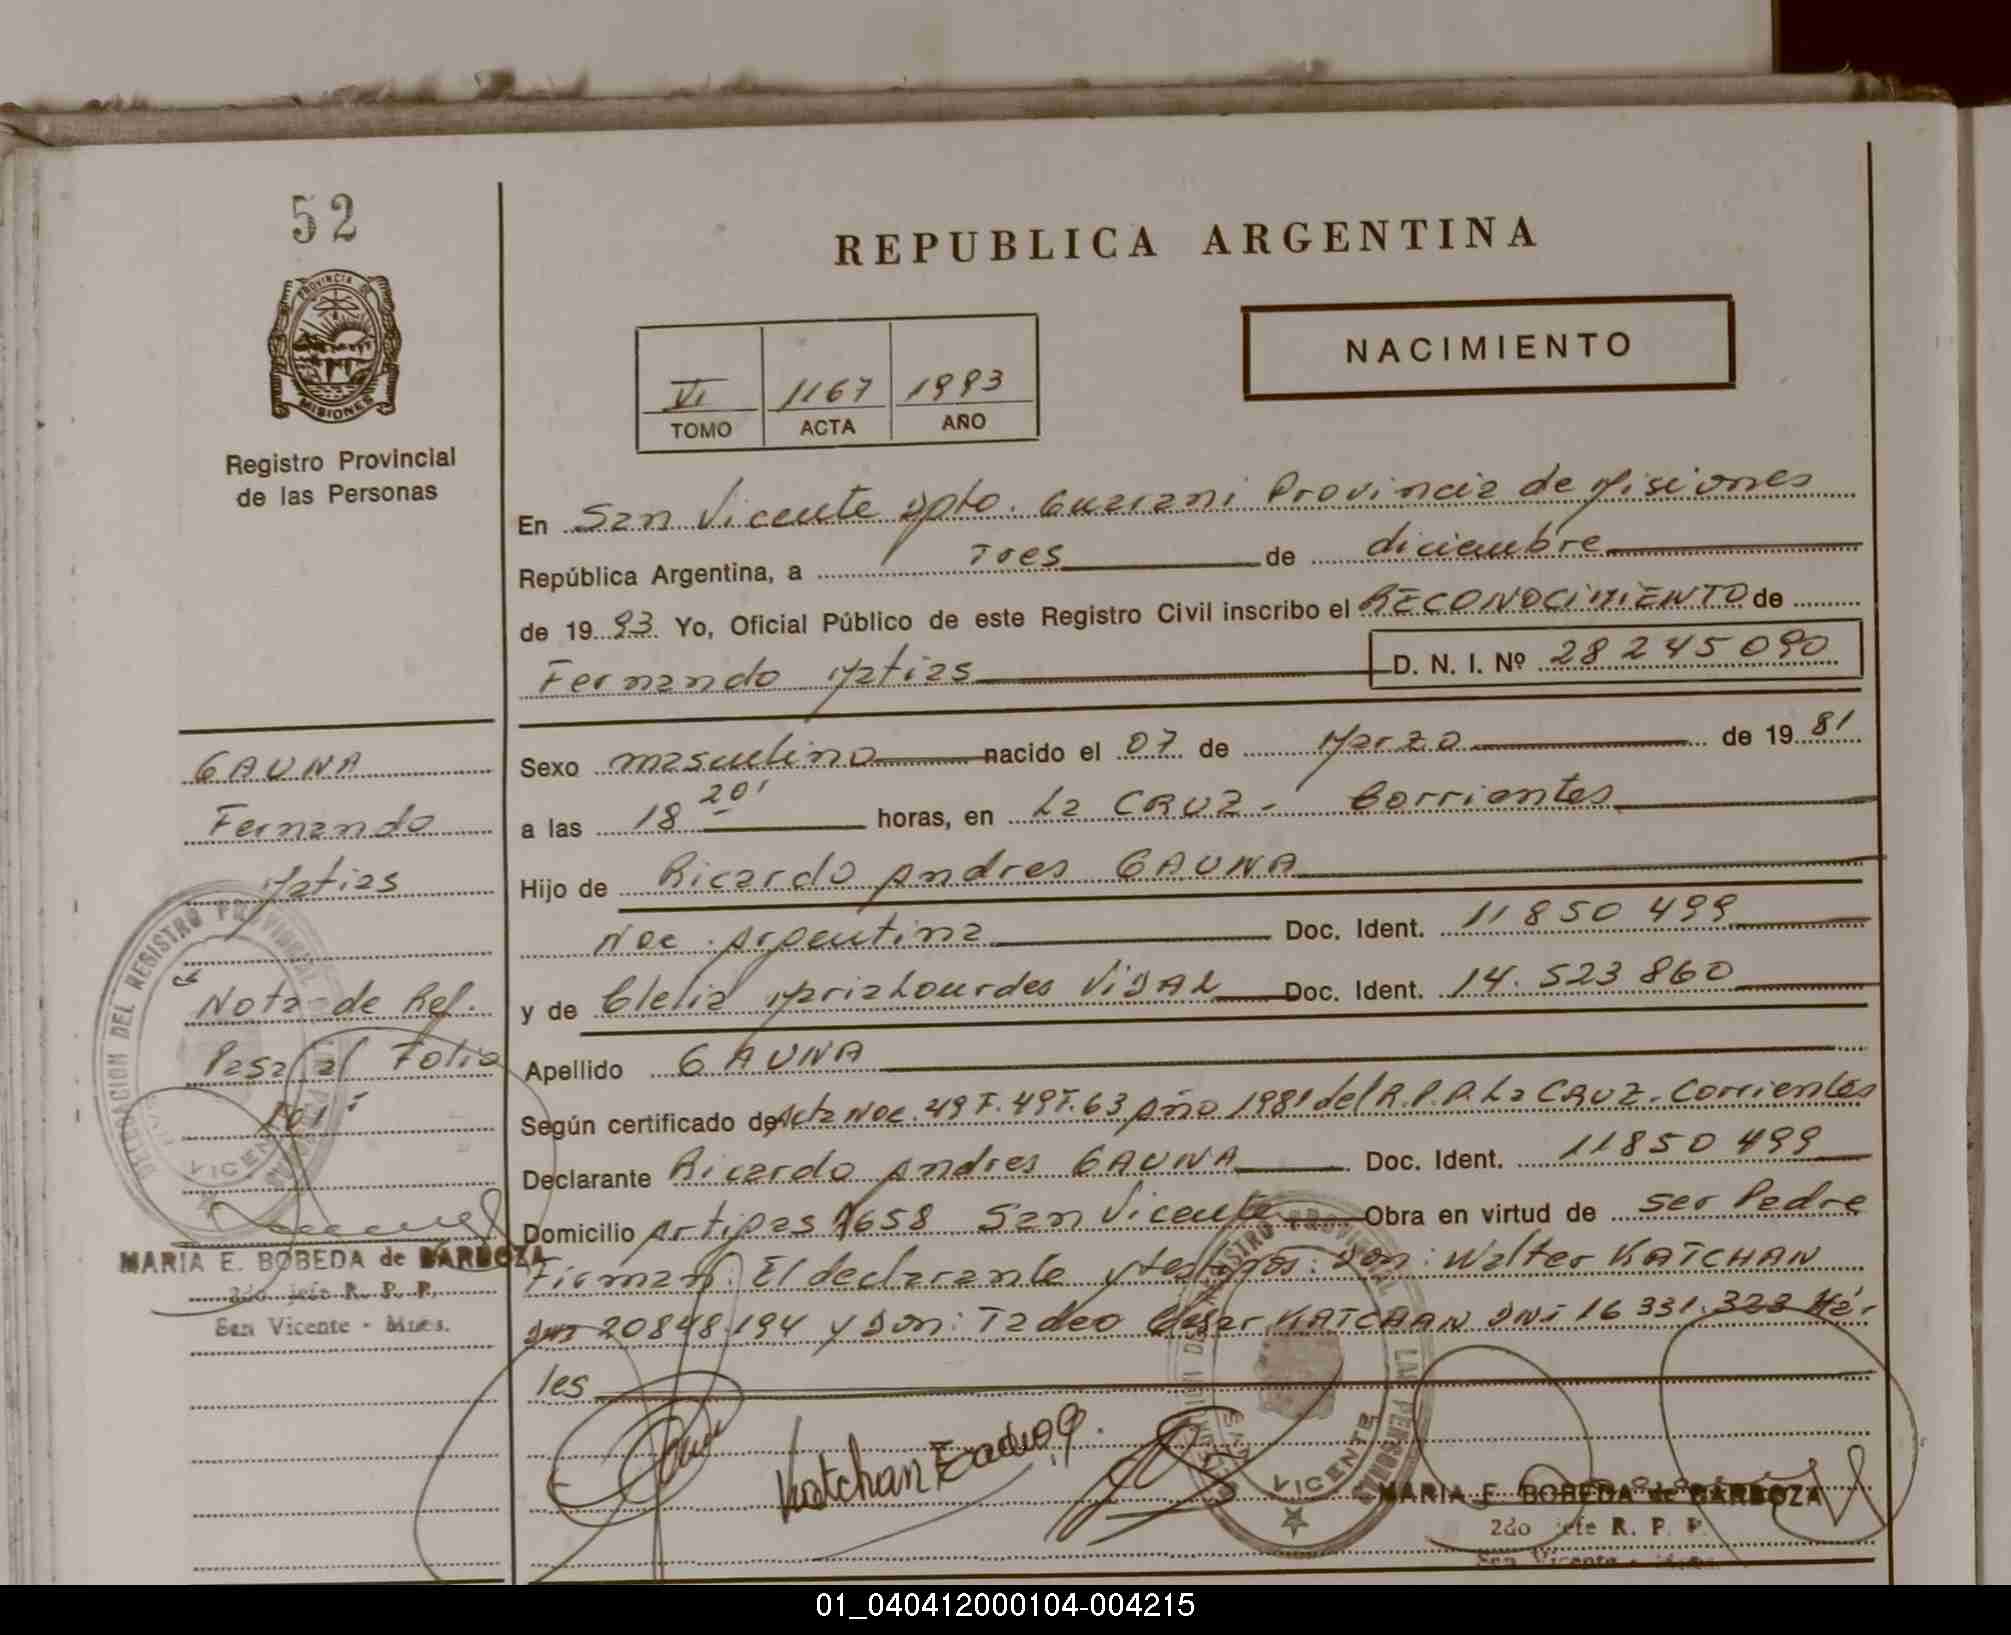 52
PROVINCIA DE
MISIONES
Registro Provincial
de las Personas
REPUBLICA ARGENTINA
NACIMIENTO
VI 1167 1993
TOMO ACTA AÑO
En San Vicente Dpto. Guarani Provincia de Misiones
República Argentina, a Tres de diciembre
de 19 93 Yo, Oficial Público de este Registro Civil inscribo el RECONOCIMIENTO de
Fernando Matias D. N. I. Nº 28245090
Sexo masculino nacido el 07 de Marzo de 19 81
a las 18 20' horas, en La CRUZ - Corrientes
Hijo de Ricardo Andres GAUNA
Nac. Argentina Doc. Ident. 11850499
y de Clelia Maria Lourdes VIDAL Doc. Ident. 14.523860
Apellido GAUNA
Según certificado de Acta Nac. 49 F. 49 T. 63 Año 1981 del R.P.P. La CRUZ. Corrientes
Declarante Ricardo Andres GAUNA Doc. Ident. 11850499
Domicilio Artigas 1658 San Vicente Obra en virtud de ser Padre
Firman: El declarante y testigos: Don: Walter KATCHAN
DNI 20848.194 y Don: Tadeo Cesar KATCHAN DNI 16331.323 Há-
les
Katchan
MARIA E. BOBEDA de BARBOZA
2do jefe R. P. P.
San Vicente - Mnes.
GAUNA
Fernando
Matias
Nota de Ref.
Pasa al Folio
101
MARIA E. BOBEDA de BARBOZA
2do jefe R. P. P.
San Vicente - Mnes.
DELEGACION DEL REGISTRO PROVINCIAL
VICENTE
01_040412000104-004215